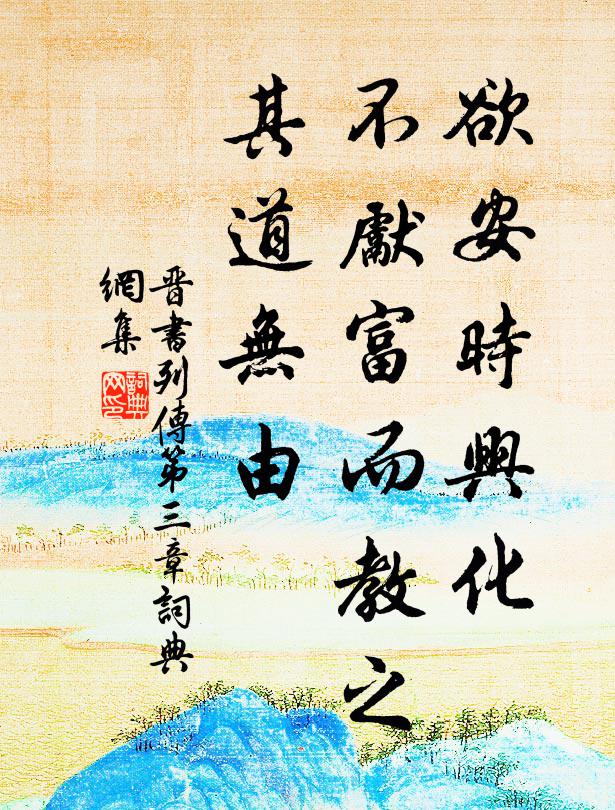 欲安時興化
不獻富而教之
其道無由
晋書列傳第三章詞典
網集
詞典
网印